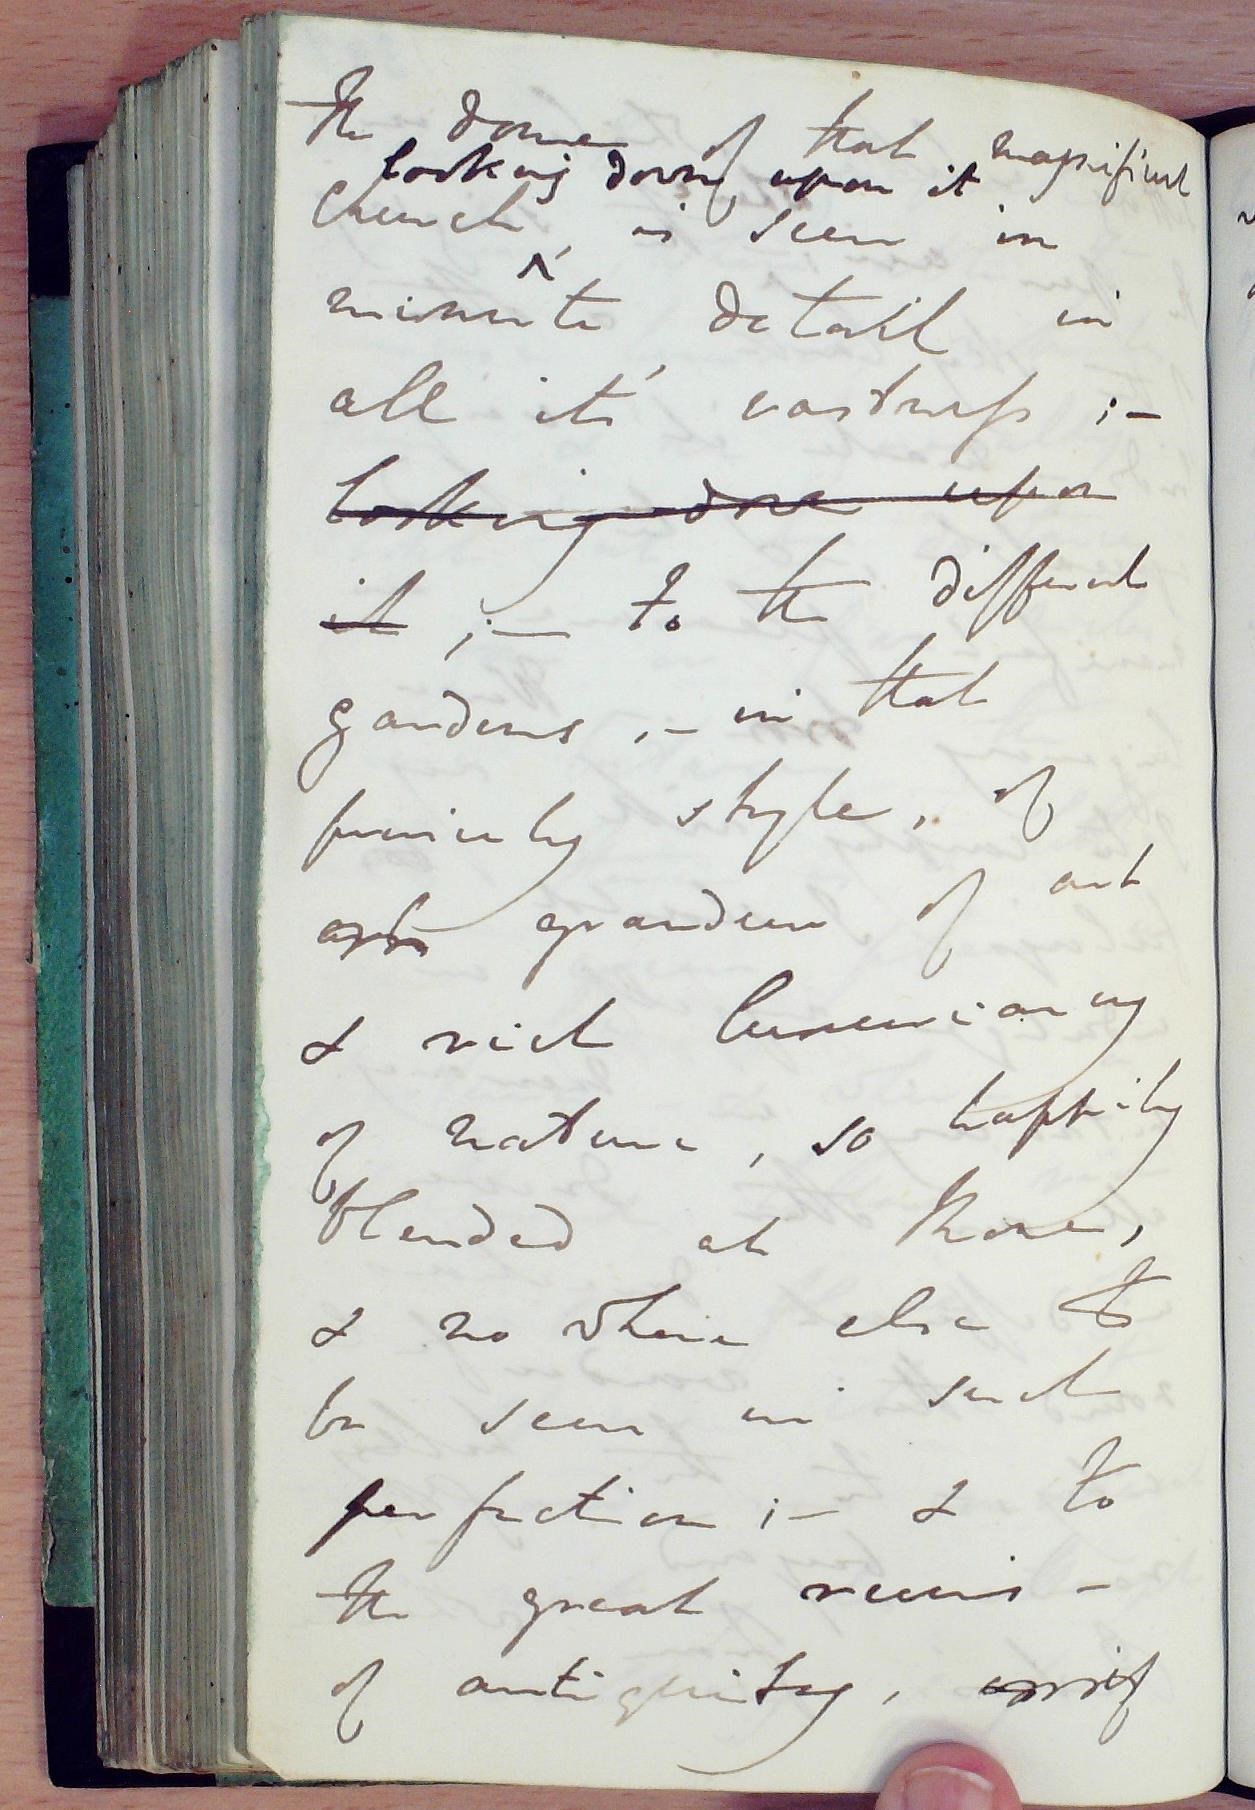 the dome of that magnificent
looking down upon it
church, is seen in
minute detail in
all it's vastness ;-
looking down upon
it ;- to the different
gardens ,- in that
princely style, of
grandeur of art
& rich luxuriancy
of nature, so happily
blended at Rome,
& no where else to
be seen in such
perfection ;- & to
the great ruins -
of antiquity,